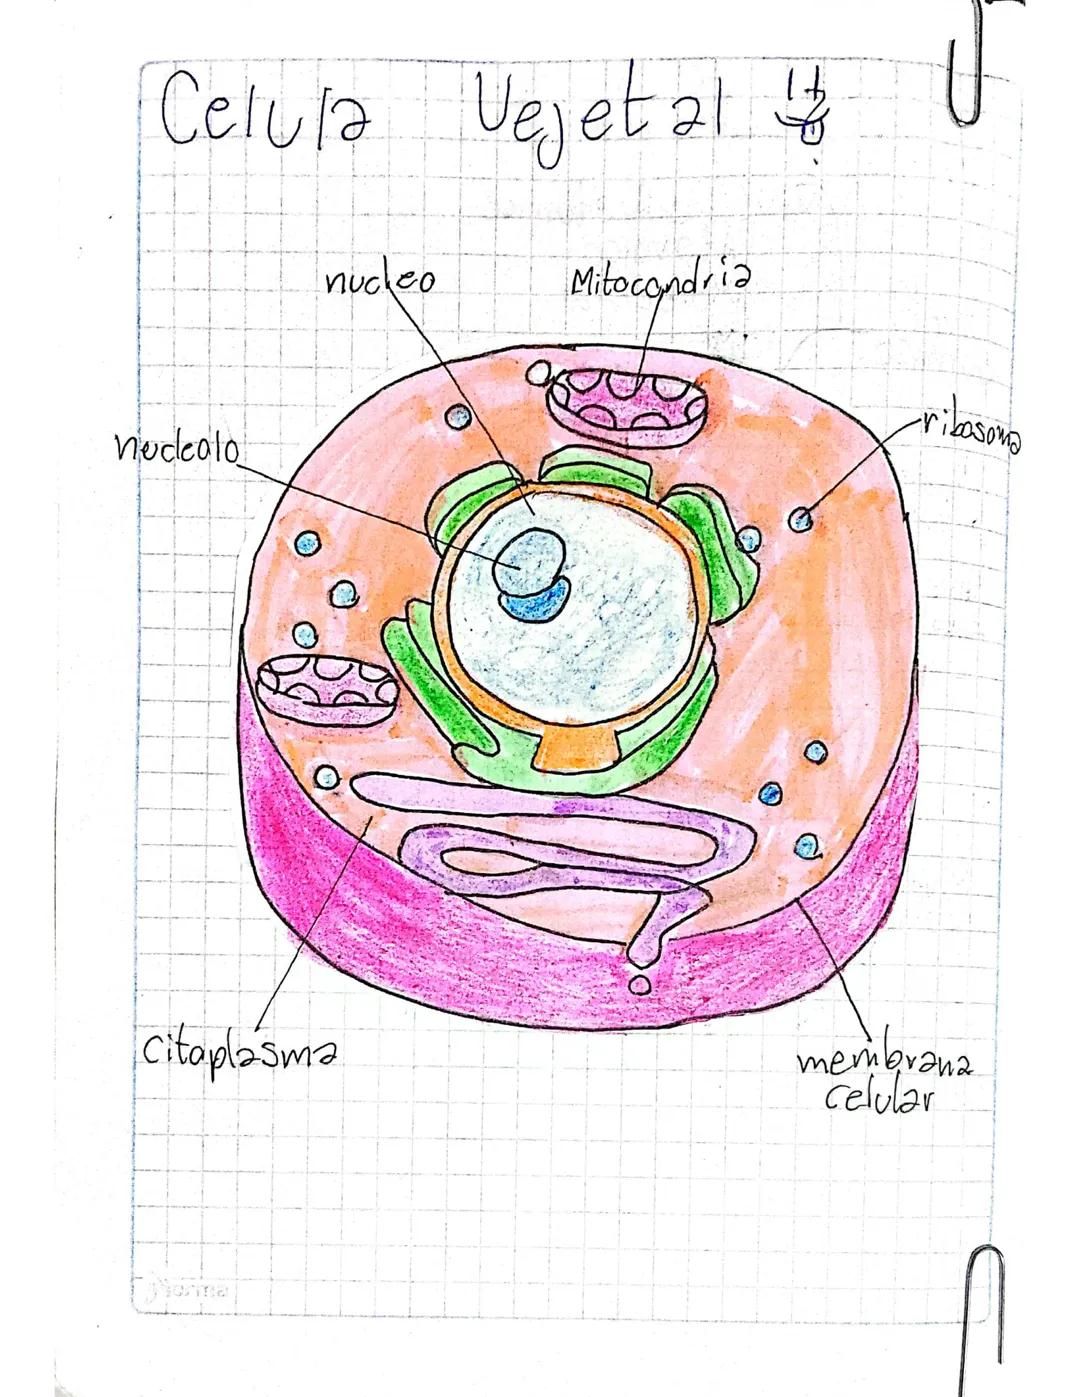 Celula Vejetal
nucleo
Mitocondria
ribosoma
nucleolo
Citoplasma
membrana
celular